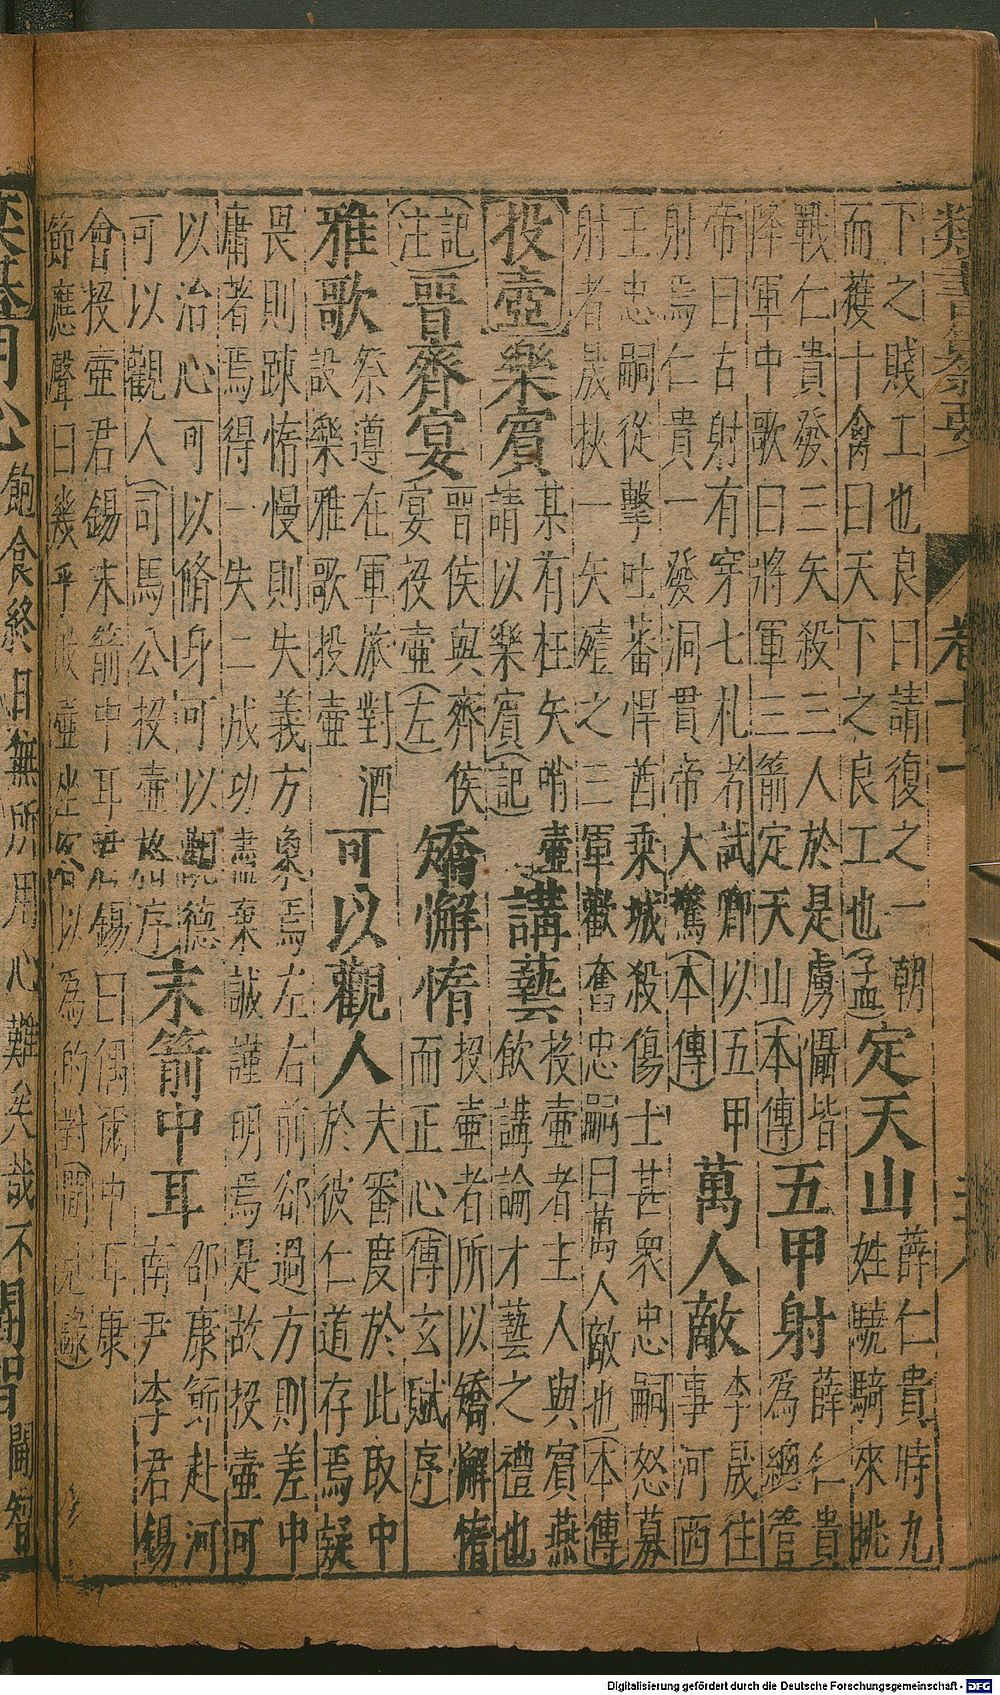 類書纂要 卷十一
下之賤工也良曰請復之一朝
而獲十禽曰天下之良工也(孟)
定天山
薛仁貴時九
姓驍騎來挑
戰仁貴發三矢殺三人於是虜懾皆
降軍中歌曰將軍三箭定天山(本傳)
五甲射
薛仁貴
為總管
帝曰古射有穿七札者試卿以五甲
射焉仁貴一發洞貫帝大驚(本傳)
萬人敵
李晟往
事河西
王忠嗣從擊吐蕃悍酋乘城殺傷士甚衆忠嗣怒募
射者晟挾一矢殪之三軍歡奮忠嗣曰萬人敵也(本傳)
投壺
樂賓
某有枉矢哨壺
請以樂賓(記)
講藝
投壺者主人與賓燕
飲講論才藝之禮也
(記注)
晉齊宴
晋侯與齊侯
宴投壺(左)
矯懈惰
投壺者所以矯懈惰
而正心(傅玄賦序)
雅歌
祭遵在軍旅對酒
設樂雅歌投壺
可以觀人
夫審度於此取中
於彼仁道存焉疑
畏則踈惰慢則失義方象焉左右前郤過方則差中
庸著焉得一失二成功盡棄誠謹明焉是故投壺可
以治心可以脩身可以觀德
可以觀人(司馬公投壺序)
末箭中耳
邵康節赴河
南尹李君錫
會投壺君錫末箭中耳君錫曰偶爾中耳康
節應聲曰幾乎敗壺坐客以為的對(聞見錄)
奕棊
用心
飽食終日無所用心難矣哉不
鬪智
鬪智
Digitalisierung gefördert durch die Deutsche Forschungsgemeinschaft - DFG